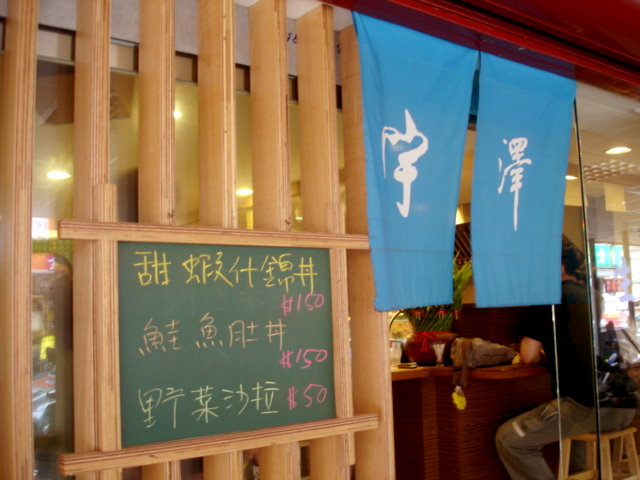 宇澤
甜蝦什錦丼
$150
鮭魚肚丼
$150
野菜沙拉 $50